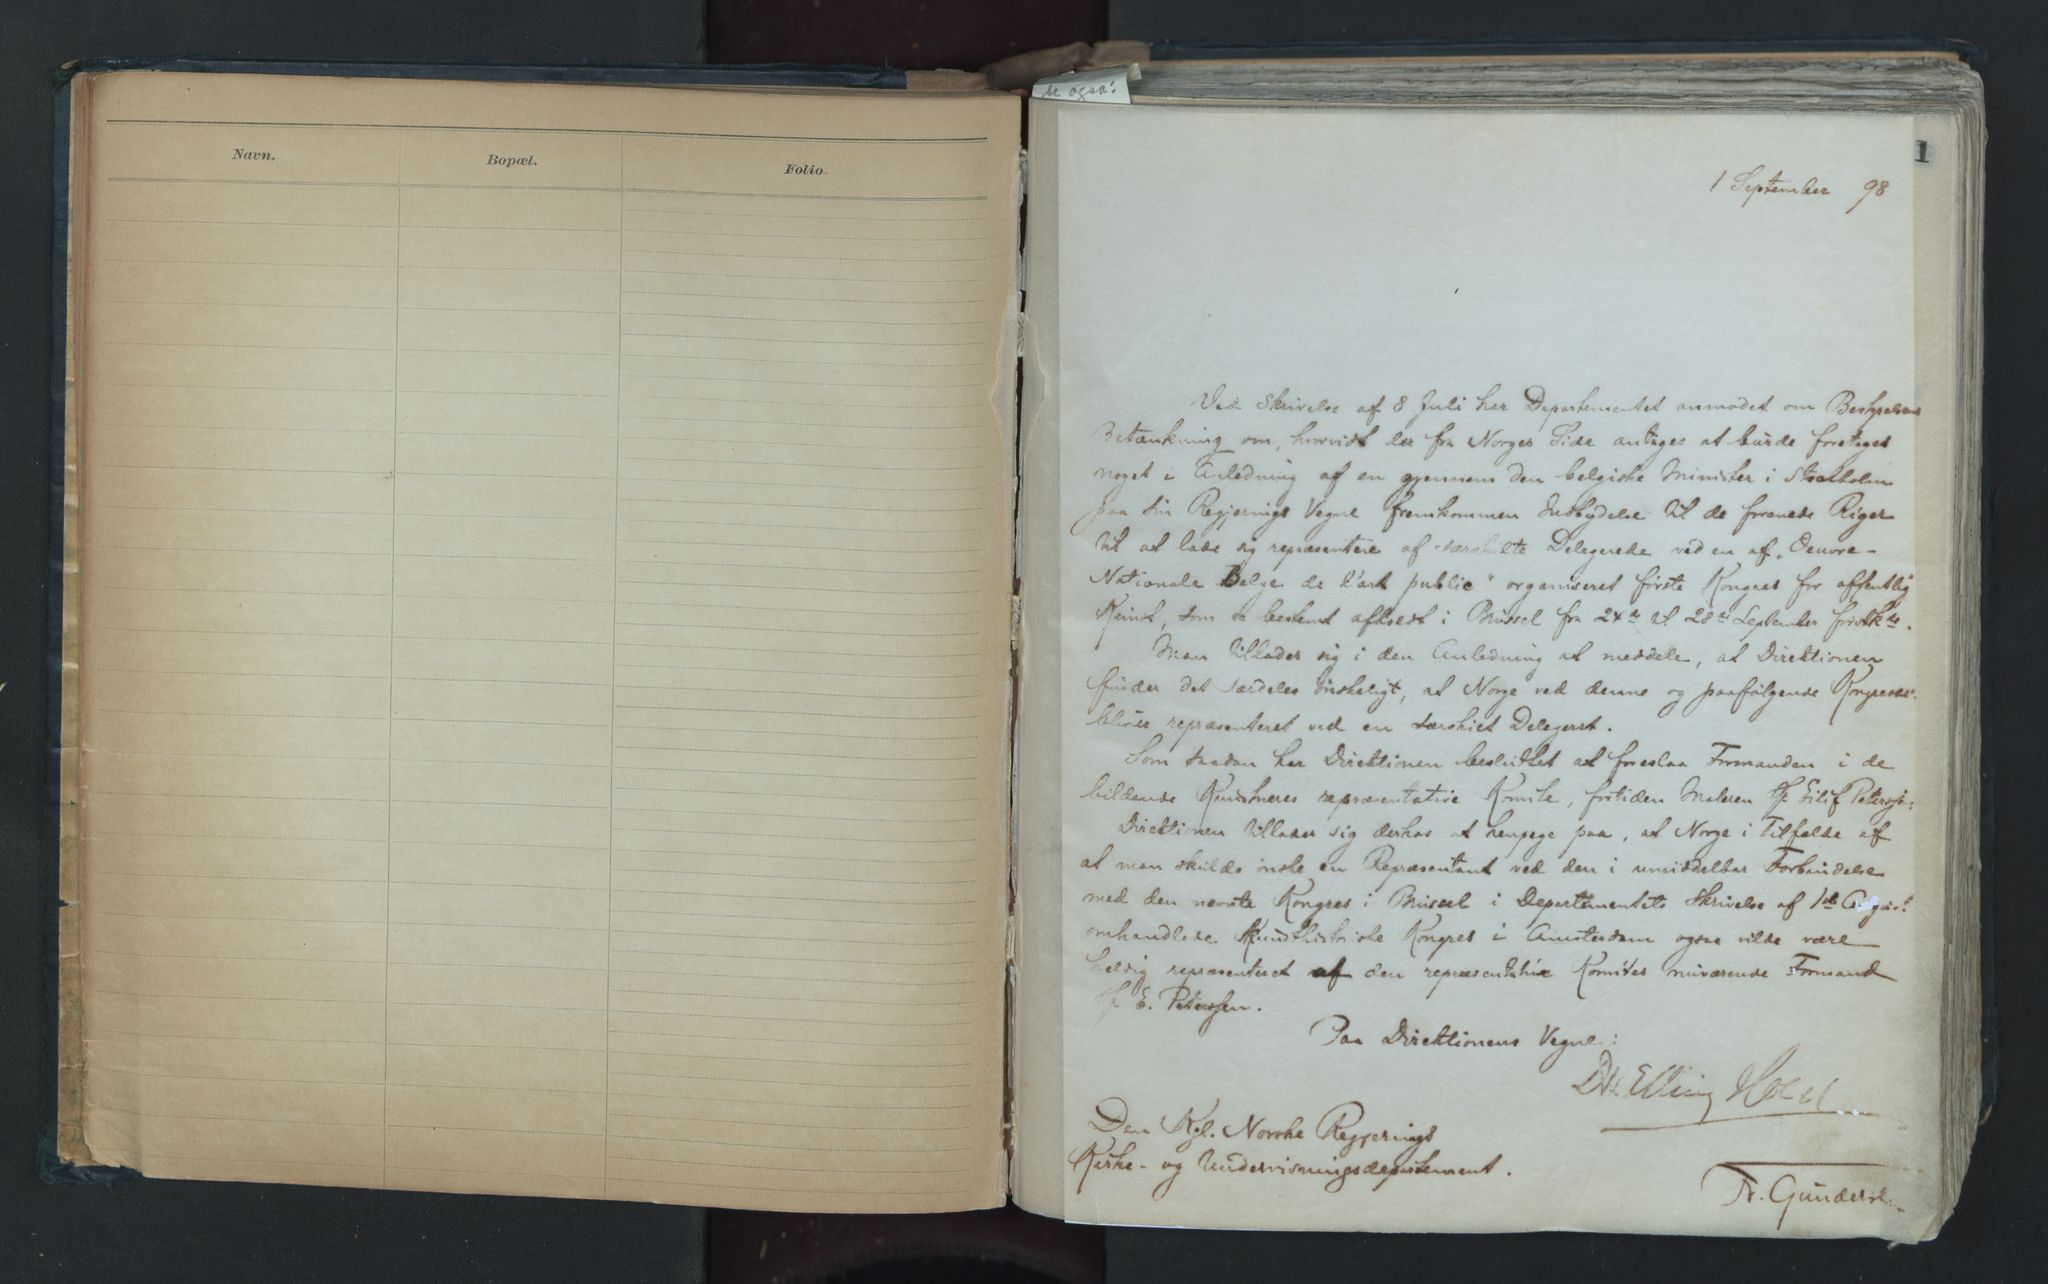 Navn.
Bopæl.
Folio.
se også:
1
1 September 98
Ved Skrivelse af 8 Juli har Departementet anmodet om Bestyrelsens
Betænkning om, hvorvidt der fra Norges Side antages at burde foretages
noget i Anledning af en gjennem den belgiske Minister i Stockholm
paa sin Regjerings Vegne fremkommen Indbydelse til de forenede Riger
til at lade sig repræsentere af særskilte Delegerede ved en af „Oeuvre
Nationale Belge de l'art public" organiseret første Kongres for offentlig
Kunst, som er bestemt afholdt i Brüssel fra 24de til 28de September førstk.
Man tillader sig i den Anledning at meddele, at Direktionen
finder det særdeles ønskeligt, at Norge ved denne og paafølgende Kongresser
bliver repræsenteret ved en særskilt Delegeret.
Som saadan har Direktionen besluttet at foreslaa Formanden i de
bildende Kunstneres repræsentative Komite, fortiden Maleren Hr Eilif Peterssen
Direktionen tillader sig derhos at henpege paa, at Norge i Tilfælde af
at man skulde ønske en Repræsentant ved den i umiddelbar Forbindelse
med den nævnte Kongres i Brüssel i Departementets Skrivelse af 1ste August
omhandlede Kunsthistoriske Kongres i Amsterdam ogsaa vilde være
heldig repræsenteret af den repræsentative Komites nuværende Formand
Hr E. Peterssen.
Paa Direktionens Vegne:
Elling Holst
Den Kgl. Norske Regjerings
Kirke- og Undervisningsdepartement.